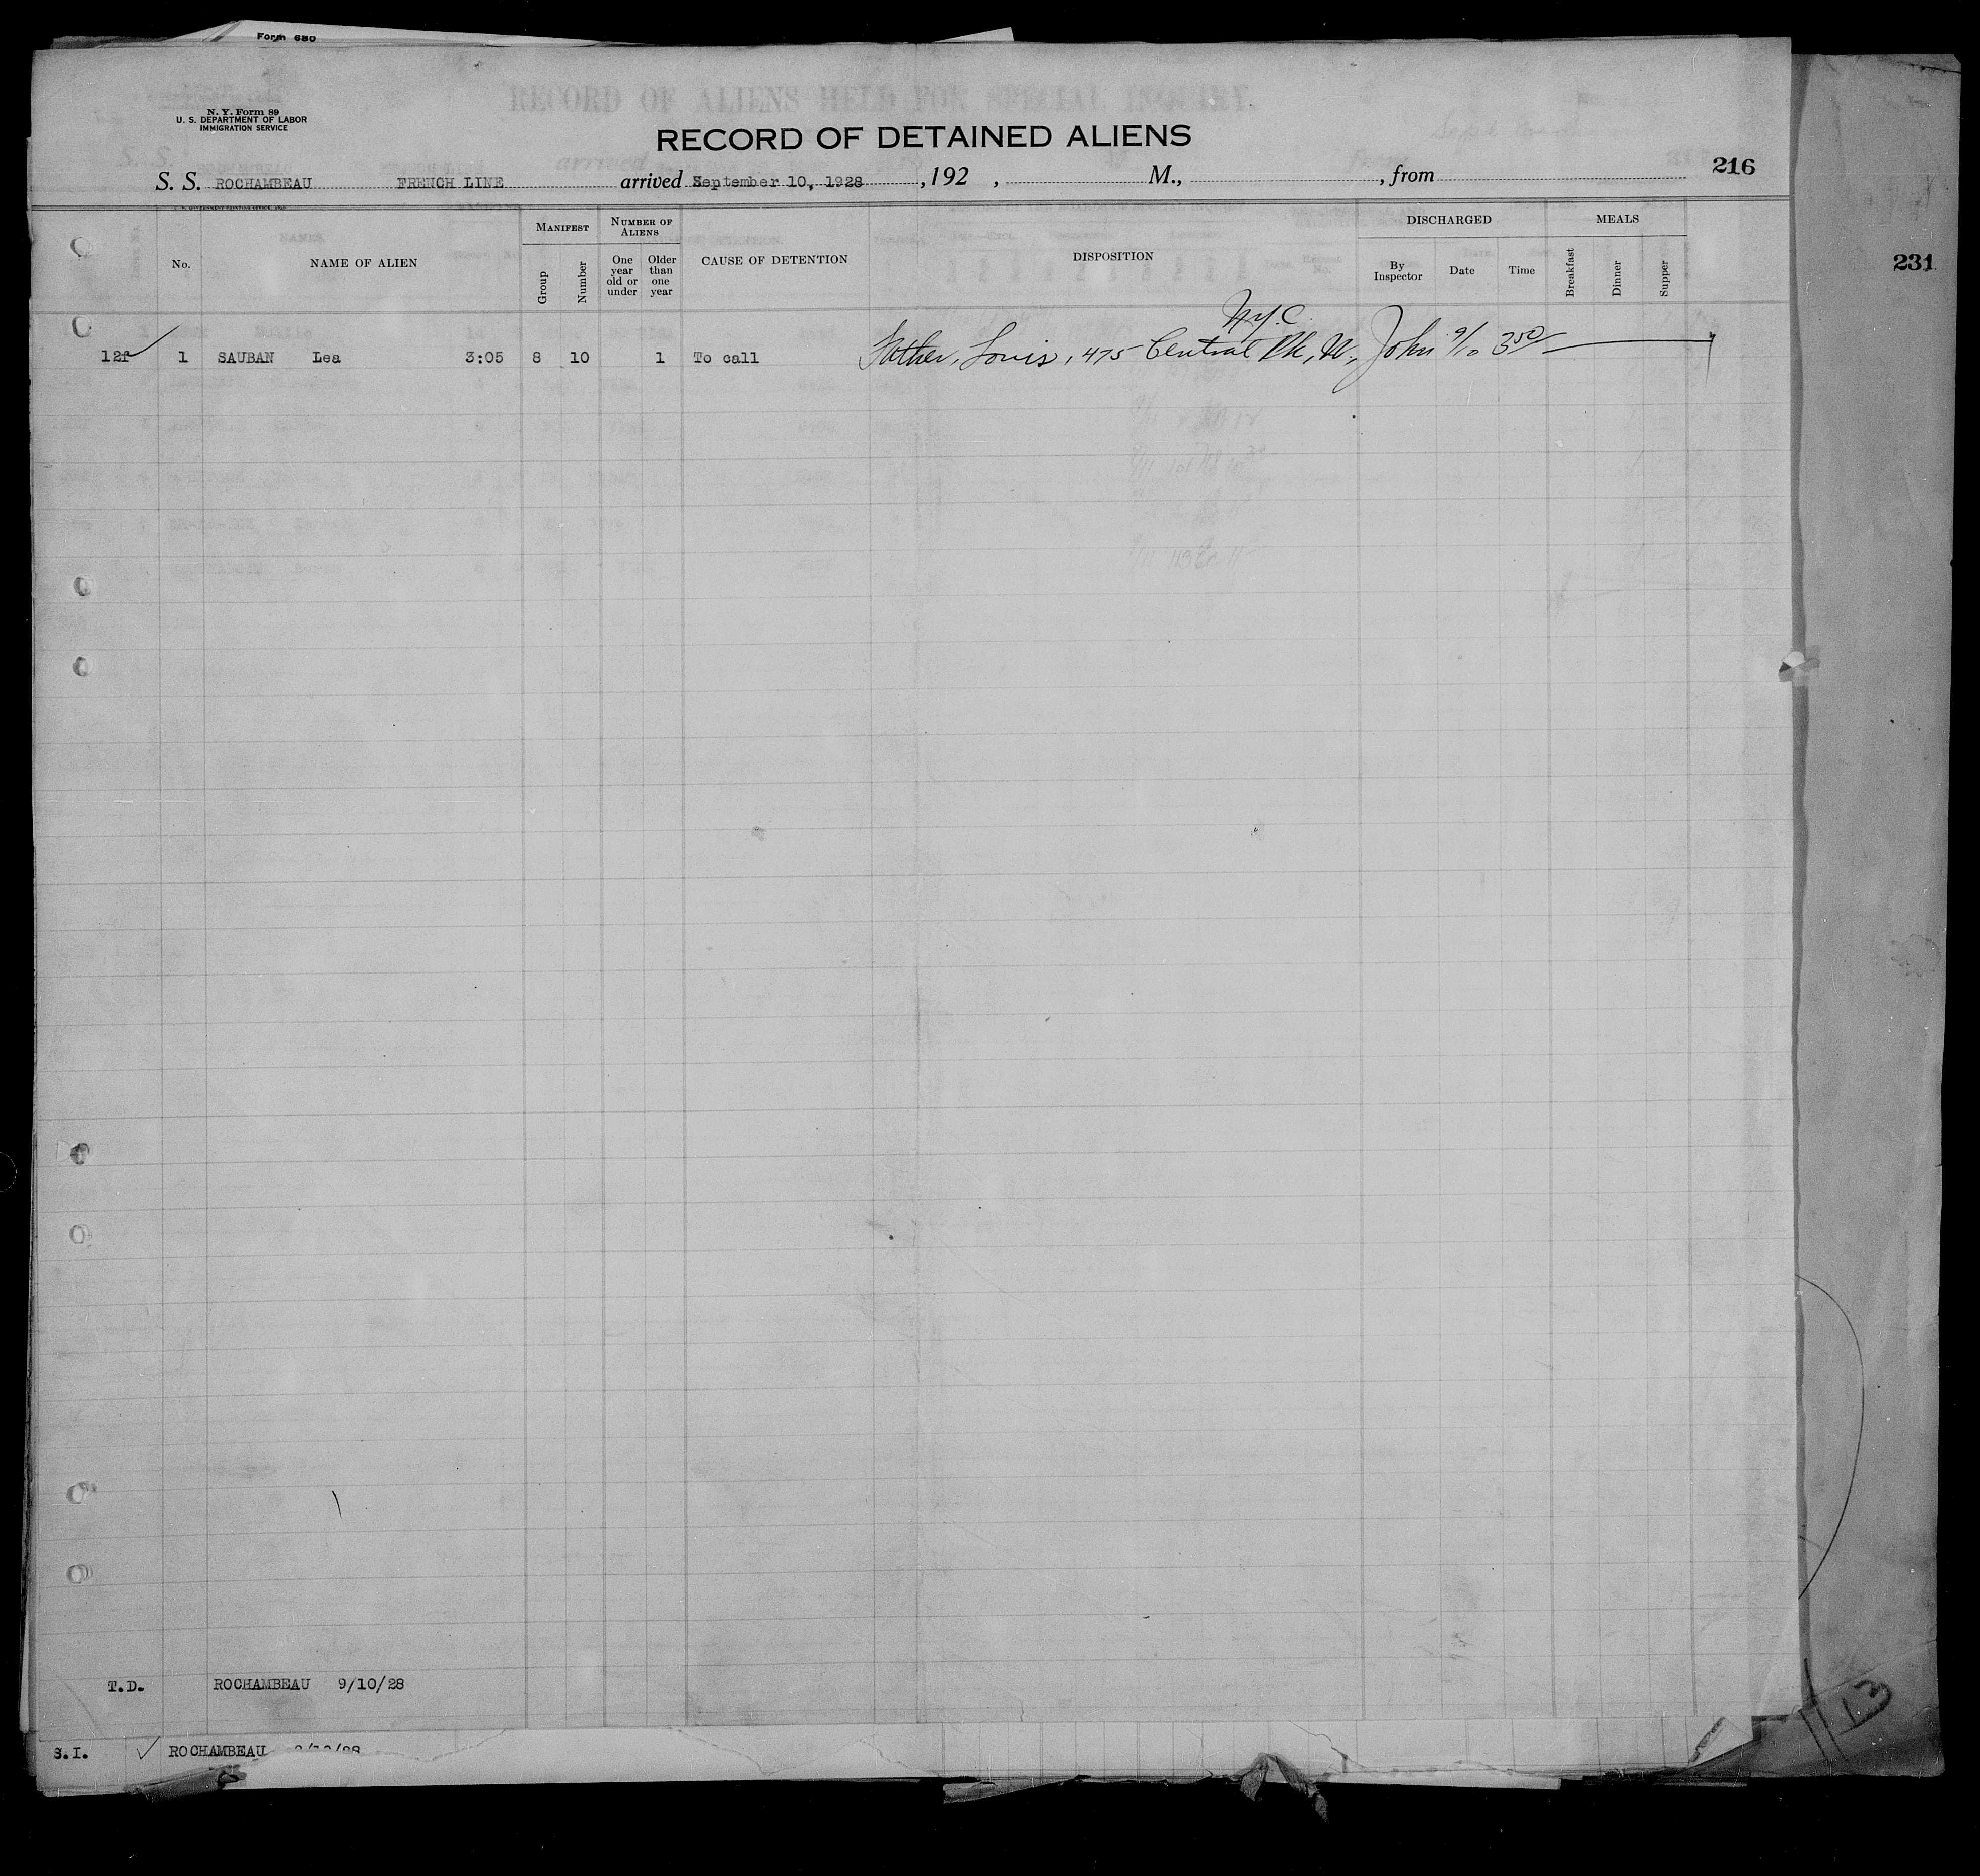 Form 630
N. Y. Form 89
U. S. DEPARTMENT OF LABOR
IMMIGRATION SERVICE
RECORD OF ALIENS HELD FOR SPECIAL INQUIRY
RECORD OF DETAINED ALIENS
216
S. S. ROCHAMBEAU FRENCH LINE arrived September 10, 1928, 192 , M., , from
231
No. NAME OF ALIEN MANIFEST Group Number NUMBER OF ALIENS One year old or under Older than one year CAUSE OF DETENTION DISPOSITION DISCHARGED By Inspector Date Time MEALS Breakfast Dinner Supper
N.Y.C.
12f 1 SAUBAN Lea 3:05 8 10 1 To call Father, Louis, 475 Central Pk, W., John 9/10 3 50
T.D. ROCHAMBEAU 9/10/28
S.I. ROCHAMBEAU
13